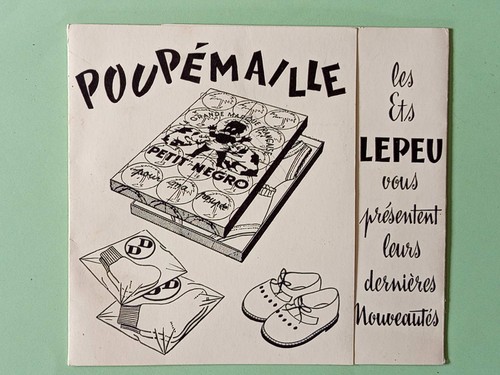 POUPÉMAILLE
GRANDE MARQUE FRANÇAISE
PETIT NEGRO
DD
DD
les
Ets
LEPEU
vous
présentent
leurs
dernières
Nouveautés